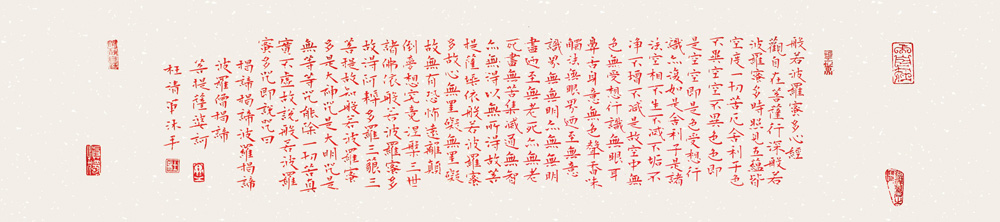 般若波羅蜜多心經
觀自在菩薩行深般若
波羅蜜多時照見五蘊皆
空度一切苦厄舍利子色
不異空空不異色色即
是空空即是色受想行
識亦復如是舍利子是諸
法空相不生不滅不垢不
淨不增不減是故空中無
色無受想行識無眼耳
鼻舌身意無色聲香味
觸法無眼界乃至無意
識界無無明亦無無明
盡乃至無老死亦無老
死盡無苦集滅道無智
亦無得以無所得故菩
提薩埵依般若波羅蜜
多故心無罣礙無罣礙
故無有恐怖遠離顛
倒夢想究竟涅槃三世
諸佛依般若波羅蜜多
故得阿耨多羅三藐三
菩提故知般若波羅蜜
多是大神咒是大明咒是
無等等咒能除一切苦真
實不虛故說般若波羅
蜜多咒即說咒曰
揭諦揭諦波羅揭諦
波羅僧揭諦
菩提薩婆訶
沐手